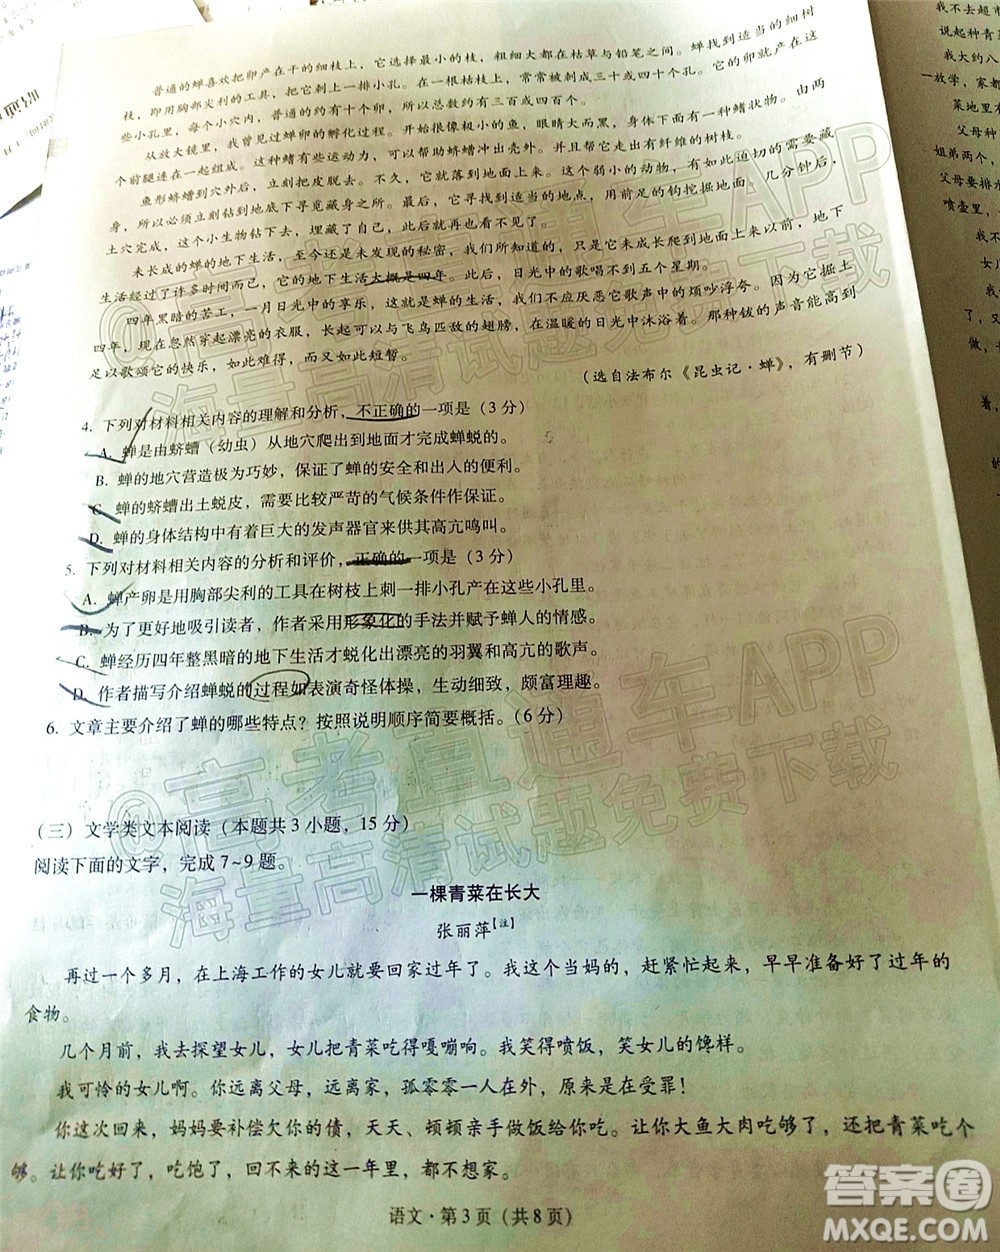 普通的蝉喜欢把卵产在干的细枝上，它选择最小的枝，粗细大都在枯草与铅笔之间。蝉找到适当的细树
枝，即用胸部尖利的工具，把它刺上一排小孔。在一根枯枝上，常常被刺成三十或四十个孔。它的卵就产在这
些小孔里，每个小穴内，普通的约有十个卵，所以总数约有三百或四百个。
从放大镜里，我曾见过蝉卵的孵化过程。开始很像极小的鱼，眼睛大而黑，身体下面有一种鳍状物。由两
个前腿迷在一起组成。这种鳍有些运动力，帮助蛴螬冲出壳外。并且帮它走出有纤维的树枝。
鱼形蛴螬到穴外后，立刻把皮脱去。不久，它就落到地面上来。这个弱小的动物，如此迫切的需要藏
身，所以必须立刻钻到地下寻觅藏身之所。最后，它找到适当的地点，用前足的钩挖掘地面。几分钟后，
土穴完成，这个小生物钻下去，埋藏了自己，此后就再看不见了。
未长成的蝉的地下生活，至今还是未发现的秘密，我们所知道的，只是它未成长爬到地面上来以前，地下
生活经过了许多时间而已，它的地下生活大概是四年。此后，日光中的歌唱不到五个星期。
四年黑暗的苦工，一月日光中的享乐，这就是蝉的生活，我们不应厌恶它歌声中的烦吵浮夸。因为它掘土
四年，现在忽然穿起漂亮的衣服，长起可以与飞鸟匹敌的翅膀，在温暖的日光中沐浴着。那种钹的声音能高到
足以歌颂它的快乐，如此难得，而又如此短暂。
（选自法布尔《昆虫记·蝉》，有删节）
4. 下列对材料相关内容的理解和分析，不正确的一项是（3 分）
A. 蝉是由蛴螬（幼虫）从地穴爬出到地面才完成蝉蜕的。
B. 蝉的地穴营造极为巧妙，保证了蝉的安全和出入的便利。
C. 蝉的蛴螬出土蜕皮，需要比较严苛的气候条件作保证。
D. 蝉的身体结构中有着巨大的发声器官来供其高亢鸣叫。
5. 下列对材料相关内容的分析和评价，正确的一项是（3 分）
A. 蝉产卵是用胸部尖利的工具在树枝上刺一排小孔产在这些小孔里。
B. 为了更好地吸引读者，作者采用形象化的手法并赋予蝉人的情感。
C. 蝉经历四年整黑暗的地下生活才蜕化出漂亮的羽翼和高亢的歌声。
D. 作者描写介绍蝉蜕的过程如表演奇怪体操，生动细致，颇富理趣。
6. 文章主要介绍了蝉的哪些特点？按照说明顺序简要概括。（6 分）
（三）文学类文本阅读（本题共 3 小题，15 分）
阅读下面的文字，完成 7~9 题。
一棵青菜在长大
张丽萍[注]
再过一个多月，在上海工作的女儿就要回家过年了。我这个当妈的，赶紧忙起来，早早准备好了过年的
食物。
几个月前，我去探望女儿，女儿把青菜吃得嘎嘣响。我笑得喷饭，笑女儿的馋样。
我可怜的女儿啊。你远离父母，远离家，孤零零一人在外，原来是在受罪！
你这次回来，妈妈要补偿欠你的债，天天、顿顿亲手做饭给你吃。让你大鱼大肉吃够了，还把青菜吃个
够。让你吃好了，吃饱了，回不来的这一年里，都不想家。
语文·第 3 页（共 8 页）
@高考直通车APP
海量高清试题免费下载
@高考直通车APP
海量高清试题免费下载
答案圈
MXQE.COM